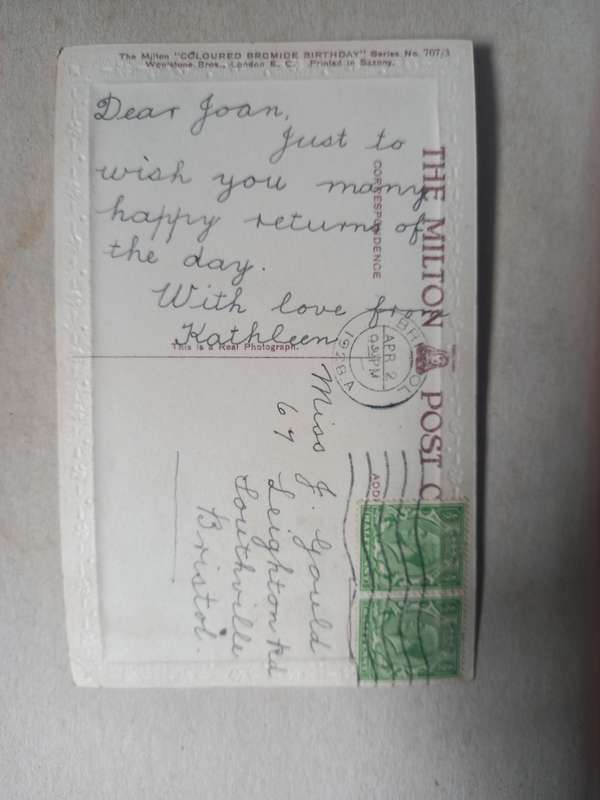 The Milton "COLOURED BROMIDE BIRTHDAY" Series No. 707/3
Woolstone Bros., London E. C. Printed in Saxony.
THE MILTON POST C
CORRESPONDENCE
Dear Joan,
Just to
wish you many
happy returns of
the day.
With love from
Kathleen
This is a Real Photograph.
BRISTOL
APR 2
PM
1928
ADD
Miss J. Gould
67 Leighton Rd
Southville
Bristol.
HALFPENNY
HALFPENNY